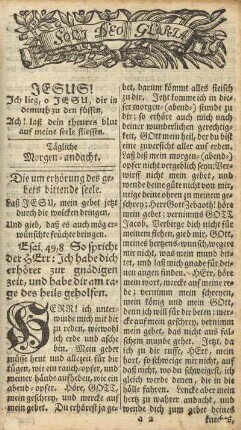 SOLI DEO GLORIA
JESUS!
Ich lieg, o JESU, dir in
demuth zu den füssen,
Ach! laß dein theures blut
auf meine seele fliessen.
Tägliche
Morgen-andacht.
Die um erhörung des ge-
bets bittende seele.
Laß JESU, mein gebet jetzt
durch die wolcken dringen,
Und gieb, daß es auch mög er-
wünschte früchte bringen.
Esai. 49,8. So spricht
der HErr: Ich habe dich
erhöret zur gnädigen
zeit, und habe dir am ta-
ge des heils geholfen.
HERR! ich unter-
winde mich mit dir
zu reden, wiewohl
ich erde und asche
bin. Mein gebet
müsse heut und allezeit für dir
tügen, wie ein rauch-opfer, und
meiner hände aufheben, wie ein
abend-opfer. Höre, GOTT,
mein geschrey, und mercke auf
mein gebet. Du erhörest ja ge-
bet, darum kömmt alles fleisch
zu dir. Jetzt komme ich in die-
ser morgen- (abend-) stunde zu
dir; so erhöre auch mich nach
deiner wunderlichen gerechtig-
keit, GOtt mein heil, der du bist
eine zuversicht aller auf erden.
Laß diß mein morgen- (abend-)
opfer nicht vergeblich seyn. Ver-
wirf mein gebet nicht, und
wende deine güte nicht von mir,
neige deine ohren zu meinem ge-
schrey; HErr GOtt Zebaoth! höre
mein gebet; vernimms GOTT
Jacobs. Verbirge dich nicht für
meinem gebet, laß dir, GOtt,
meines hertzens-wunsch,
wegen mein seufzen und schreyen ge-
fallen, und laß mich gnade für dei-
nen augen finden. HErr, höre
mein wort, mercke auf meine re-
de; vernimm mein schreyen,
mein könig und mein GOtt,
denn ich will für dir beten; mer-
cke auf mein geschrey, vernimm
mein gebet, das nicht aus fal-
schem munde gehet. Verbirge
dich nicht für meinem geschrey
und flehen, auf daß ich nicht
gleich werde denen, die in die
hölle fahren. Lencke aber mein
hertz zu wahrer andacht, und
wende dich zum gebet deines
a 2 knechts,